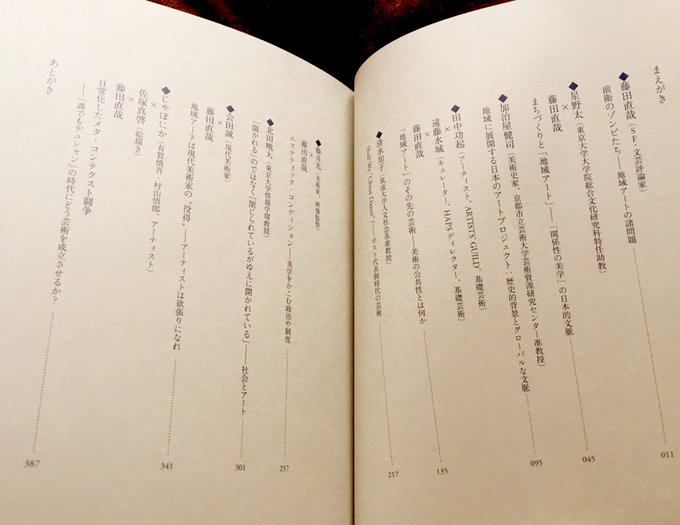 まえがき
◆藤田直哉(SF・文芸評論家)
前衛のゾンビたち——地域アートの諸問題 011
◆星野太(東京大学大学院総合文化研究科特任助教)
×
藤田直哉
まちづくりと「地域アート」——「関係性の美学」の日本的文脈 045
◆加治屋健司(美術史家、京都市立芸術大学芸術資源研究センター准教授)
地域に展開する日本のアートプロジェクト:歴史的背景とグローバルな文脈 095
◆田中功起(アーティスト、ARTISTS' GUILD、基礎芸術)
×
遠藤水城(キュレーター、HAPSディレクター、基礎芸術)
×
藤田直哉
「地域アート」のその先の芸術——美術の公共性とは何か 135
◆清水知子(筑波大学人文社会系准教授)
Shall We “Ghost Dance”?——ポスト代表制時代の芸術 217
◆藤井光(美術家、映像監督)
×
藤田直哉
エステティック・コンディション——美学をかこむ政治や制度 257
◆北田暁大(東京大学情報学環教授)
「開かれる」のではなく「閉じられているがゆえに開かれている」——社会とアート 301
◆会田誠(現代美術家)
×
藤田直哉
地域アートは現代美術家の“役得”——アーティストは欲張りになれ 341
◆じゃぽにか(有賀慎吾・村山悟郎、アーティスト)
×
佐塚真啓(絵描き)
×
藤田直哉
日常化したメタ・コンテクスト闘争
——「誰でもデュシャン」の時代にどう芸術を成立させるか? 387
あとがき